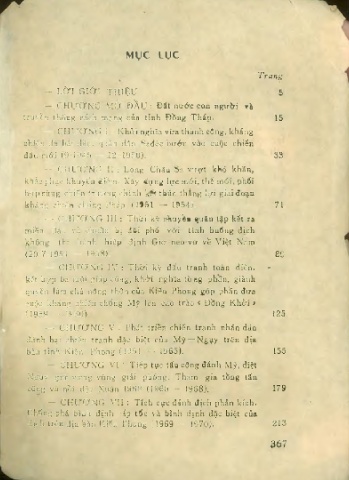 MỤC LỤC
Trang
— LỜI GIỚI THIỆU 5
— CHƯƠNG MỞ ĐẦU: Đất nước con người và
truyền thống cách mạng của tỉnh Đồng Tháp. 15
— CHƯƠNG I: Khởi nghĩa vừa thành công, kháng
chiến bước vào cuộc chiến
đấu mới 33
— CHƯƠNG II: Long Châu Sa vượt khó khăn,
Xây dựng lực mới, thế mới, phối
kết thúc thắng lợi giai đoạn
kháng chiến chống Pháp (1951 — 1954). 71
— CHƯƠNG III: Thời kỳ chuyển quân tập kết ra
miền đối phó với tình huống địch
không thi hành hiệp định Giơ-ne-vơ về Việt Nam
89
— CHƯƠNG IV: Thời kỳ đấu tranh toàn diện,
kết hợp khởi nghĩa từng phần, giành
quyền làm chủ nông thôn của Kiến Phong góp phần đưa
chống Mỹ lên cao trào « Đồng Khởi »
125
— CHƯƠNG V: Phát triển chiến tranh nhân dân
đánh bại chiến tranh đặc biệt của Mỹ — Ngụy trên địa
bàn tỉnh Kiến Phong (1961 — 1965). 153
— CHƯƠNG VI: Tiếp tục tấn công đánh Mỹ, diệt
vùng giải phóng. Tham gia tổng tấn
công và nổi dậy Xuân 1968 (1965 — 1968). 179
— CHƯƠNG VII: Tích cực đánh địch phản kích.
Chống phá bình định cấp tốc và bình định đặc biệt của
địch trên địa bàn Kiến Phong (1969 — 1970). 213
367